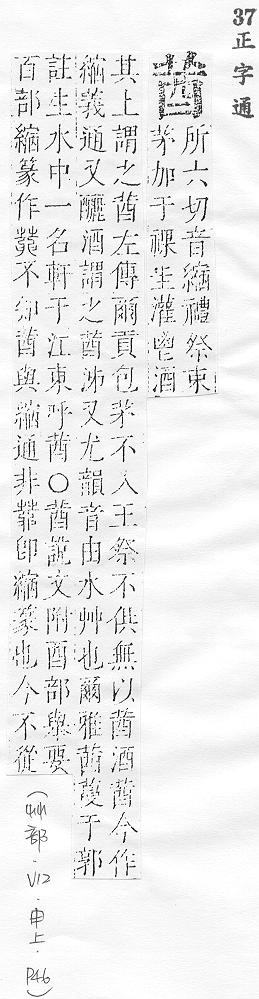 37正字通
莤
所六切音縮禮祭束
茅加于祼圭灌鬯酒
其上謂之莤左傳爾貢包茅不入王祭不供無以莤酒莤今作
縮義通又釃酒謂之莤泲又尤韻音由水艸也爾雅莤蔓于郭
註生水中一名軒于江東呼莤〇莤說文附酉部舉要
百部縮篆作 不知莤與縮通非 卽縮篆也今不從
(艸部．V12．申上．P46)